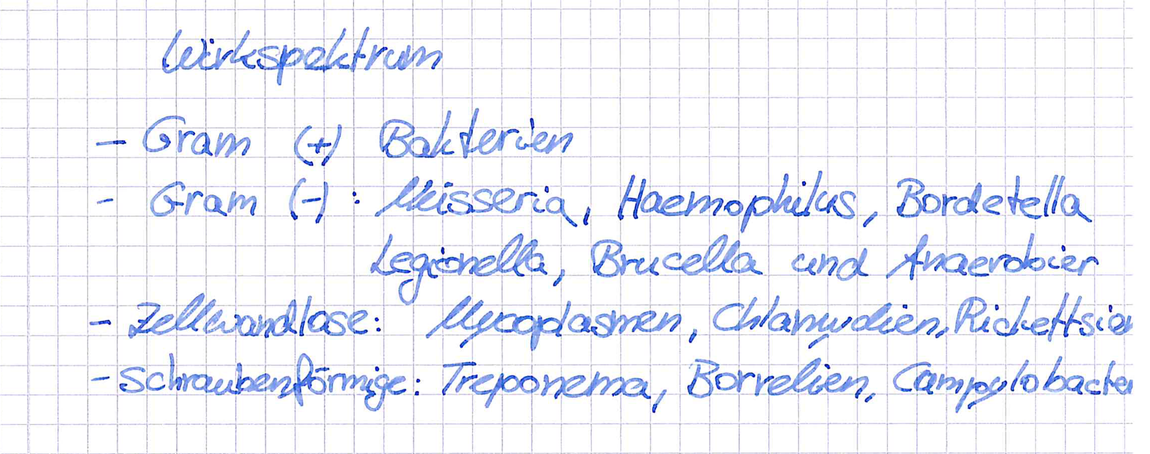 Wirkspektrum
- Gram (+) Bakterien
- Gram (-): Neisseria, Haemophilus, Bordetella
Legionella, Brucella und Anaerobier
- Zellwandlose: Mycoplasmen, Chlamydien, Rickettsien
- Schraubenförmige: Treponema, Borrelien, Campylobacter